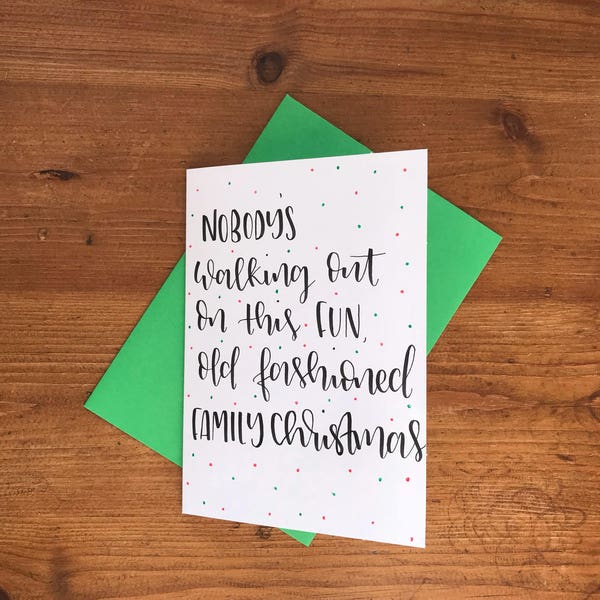 NOBODY'S
walking out
on this FUN,
old fashioned
FAMILY Christmas